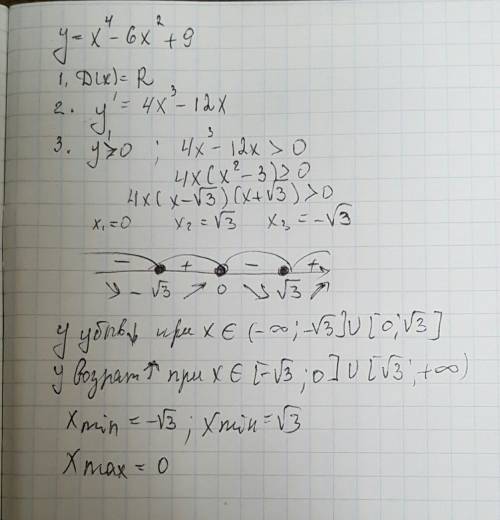 y = x⁴ - 6x² + 9
1. D(x) = R
2. y' = 4x³ - 12x
3. y' ≥ 0 ; 4x³ - 12x > 0
4x(x² - 3) ≥ 0
4x(x - √3)(x + √3) > 0
x₁ = 0 x₂ = √3 x₃ = -√3
- + - +
↘ -√3 ↗ 0 ↘ √3 ↗
y убыв↓ при x ∈ (-∞; -√3] ∪ [0; √3]
y возрат↑ при x ∈ [-√3; 0] ∪ [√3; +∞)
Xmin = -√3 ; Xmin = √3
Xmax = 0